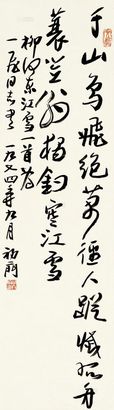 千山鳥飛絕萬徑人蹤滅孤舟
蓑笠翁獨釣寒江雪
柳河東江雪一首為
同志書 一九七四年九月